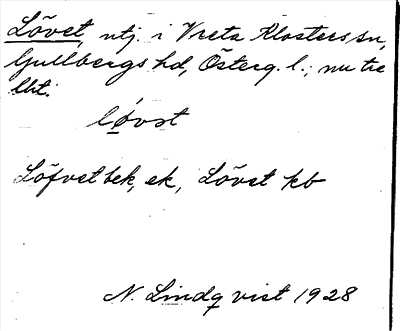 Lövet, utj. i Vreta Klosters sn,
Gullbergs hd, Österg. l.; nu tre
lht.
lǿvət
Löfvet bek, ek, Lövet kb
N. Lindqvist 1928